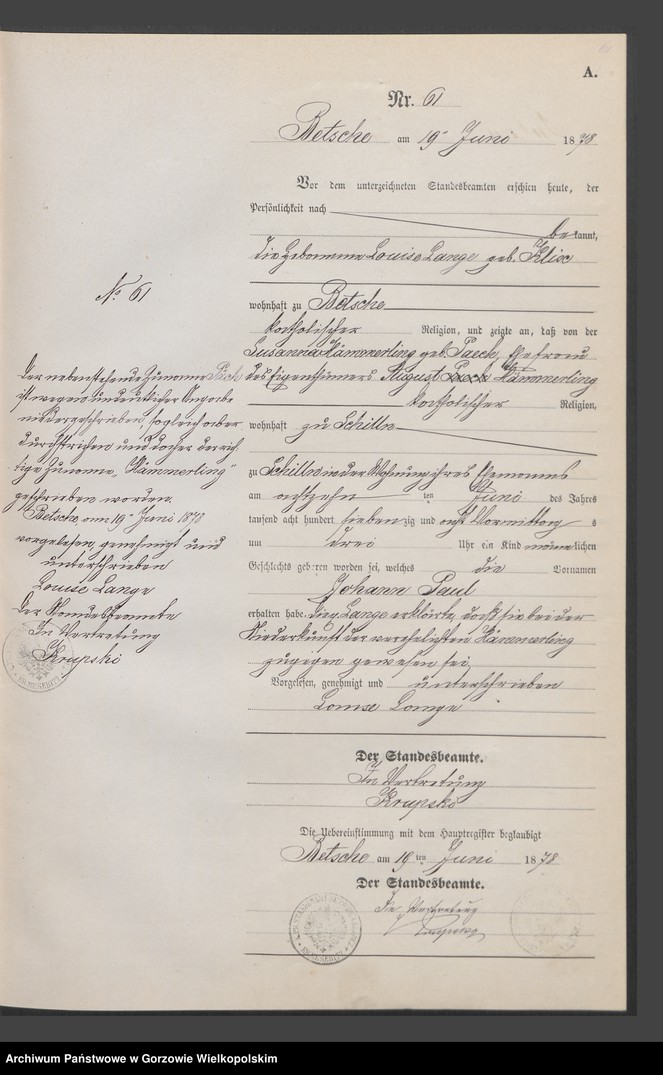 A.
Nr. 61
Betsche am 19ten Juni 1878
Vor dem unterzeichneten Standesbeamten erschien heute, der
Persönlichkeit nach
bekannt,
die Hebamme Louise Lange geb. Klix
wohnhaft zu Betsche
katholischer Religion, und zeigte an, daß von der
Susanna Hämmerling geb. Paech, Ehefrau
des Eigenthümers August Paech Hämmerling
katholischer Religion,
wohnhaft zu Schilln
zu Schilln in der Wohnung ihres Ehemanns
am achtzehnten Juni des Jahres
tausend acht hundert siebenzig und acht Vormittags
um drei Uhr ein Kind männlichen
Geschlechts geboren worden sei, welches die Vornamen
Johann Paul
erhalten habe. Die Lange erklärte, daß sie bei der
Niederkunft der verehelichten Hämmerling
zugegen gewesen sei.
Vorgelesen, genehmigt und unterschrieben
Louise Lange
Der Standesbeamte.
In Vertretung
Krupski
Die Uebereinstimmung mit dem Hauptregister beglaubigt
Betsche am 19ten Juni 1878
Der Standesbeamte.
In Vertretung
Krupski
No 61
Der nebenstehende Zuname Päch
ist wegen undeutlicher Angabe
niedergeschrieben sogleich aber
durchstrichen und daher der rich
tige Zuname "Hämmerling"
geschrieben worden.
Betsche, am 19ten Juni 1878
vorgelesen, genehmigt und
unterschrieben
Louise Lange
Der Standesbeamte
In Vertretung
Krupski
Archiwum Państwowe w Gorzowie Wielkopolskim